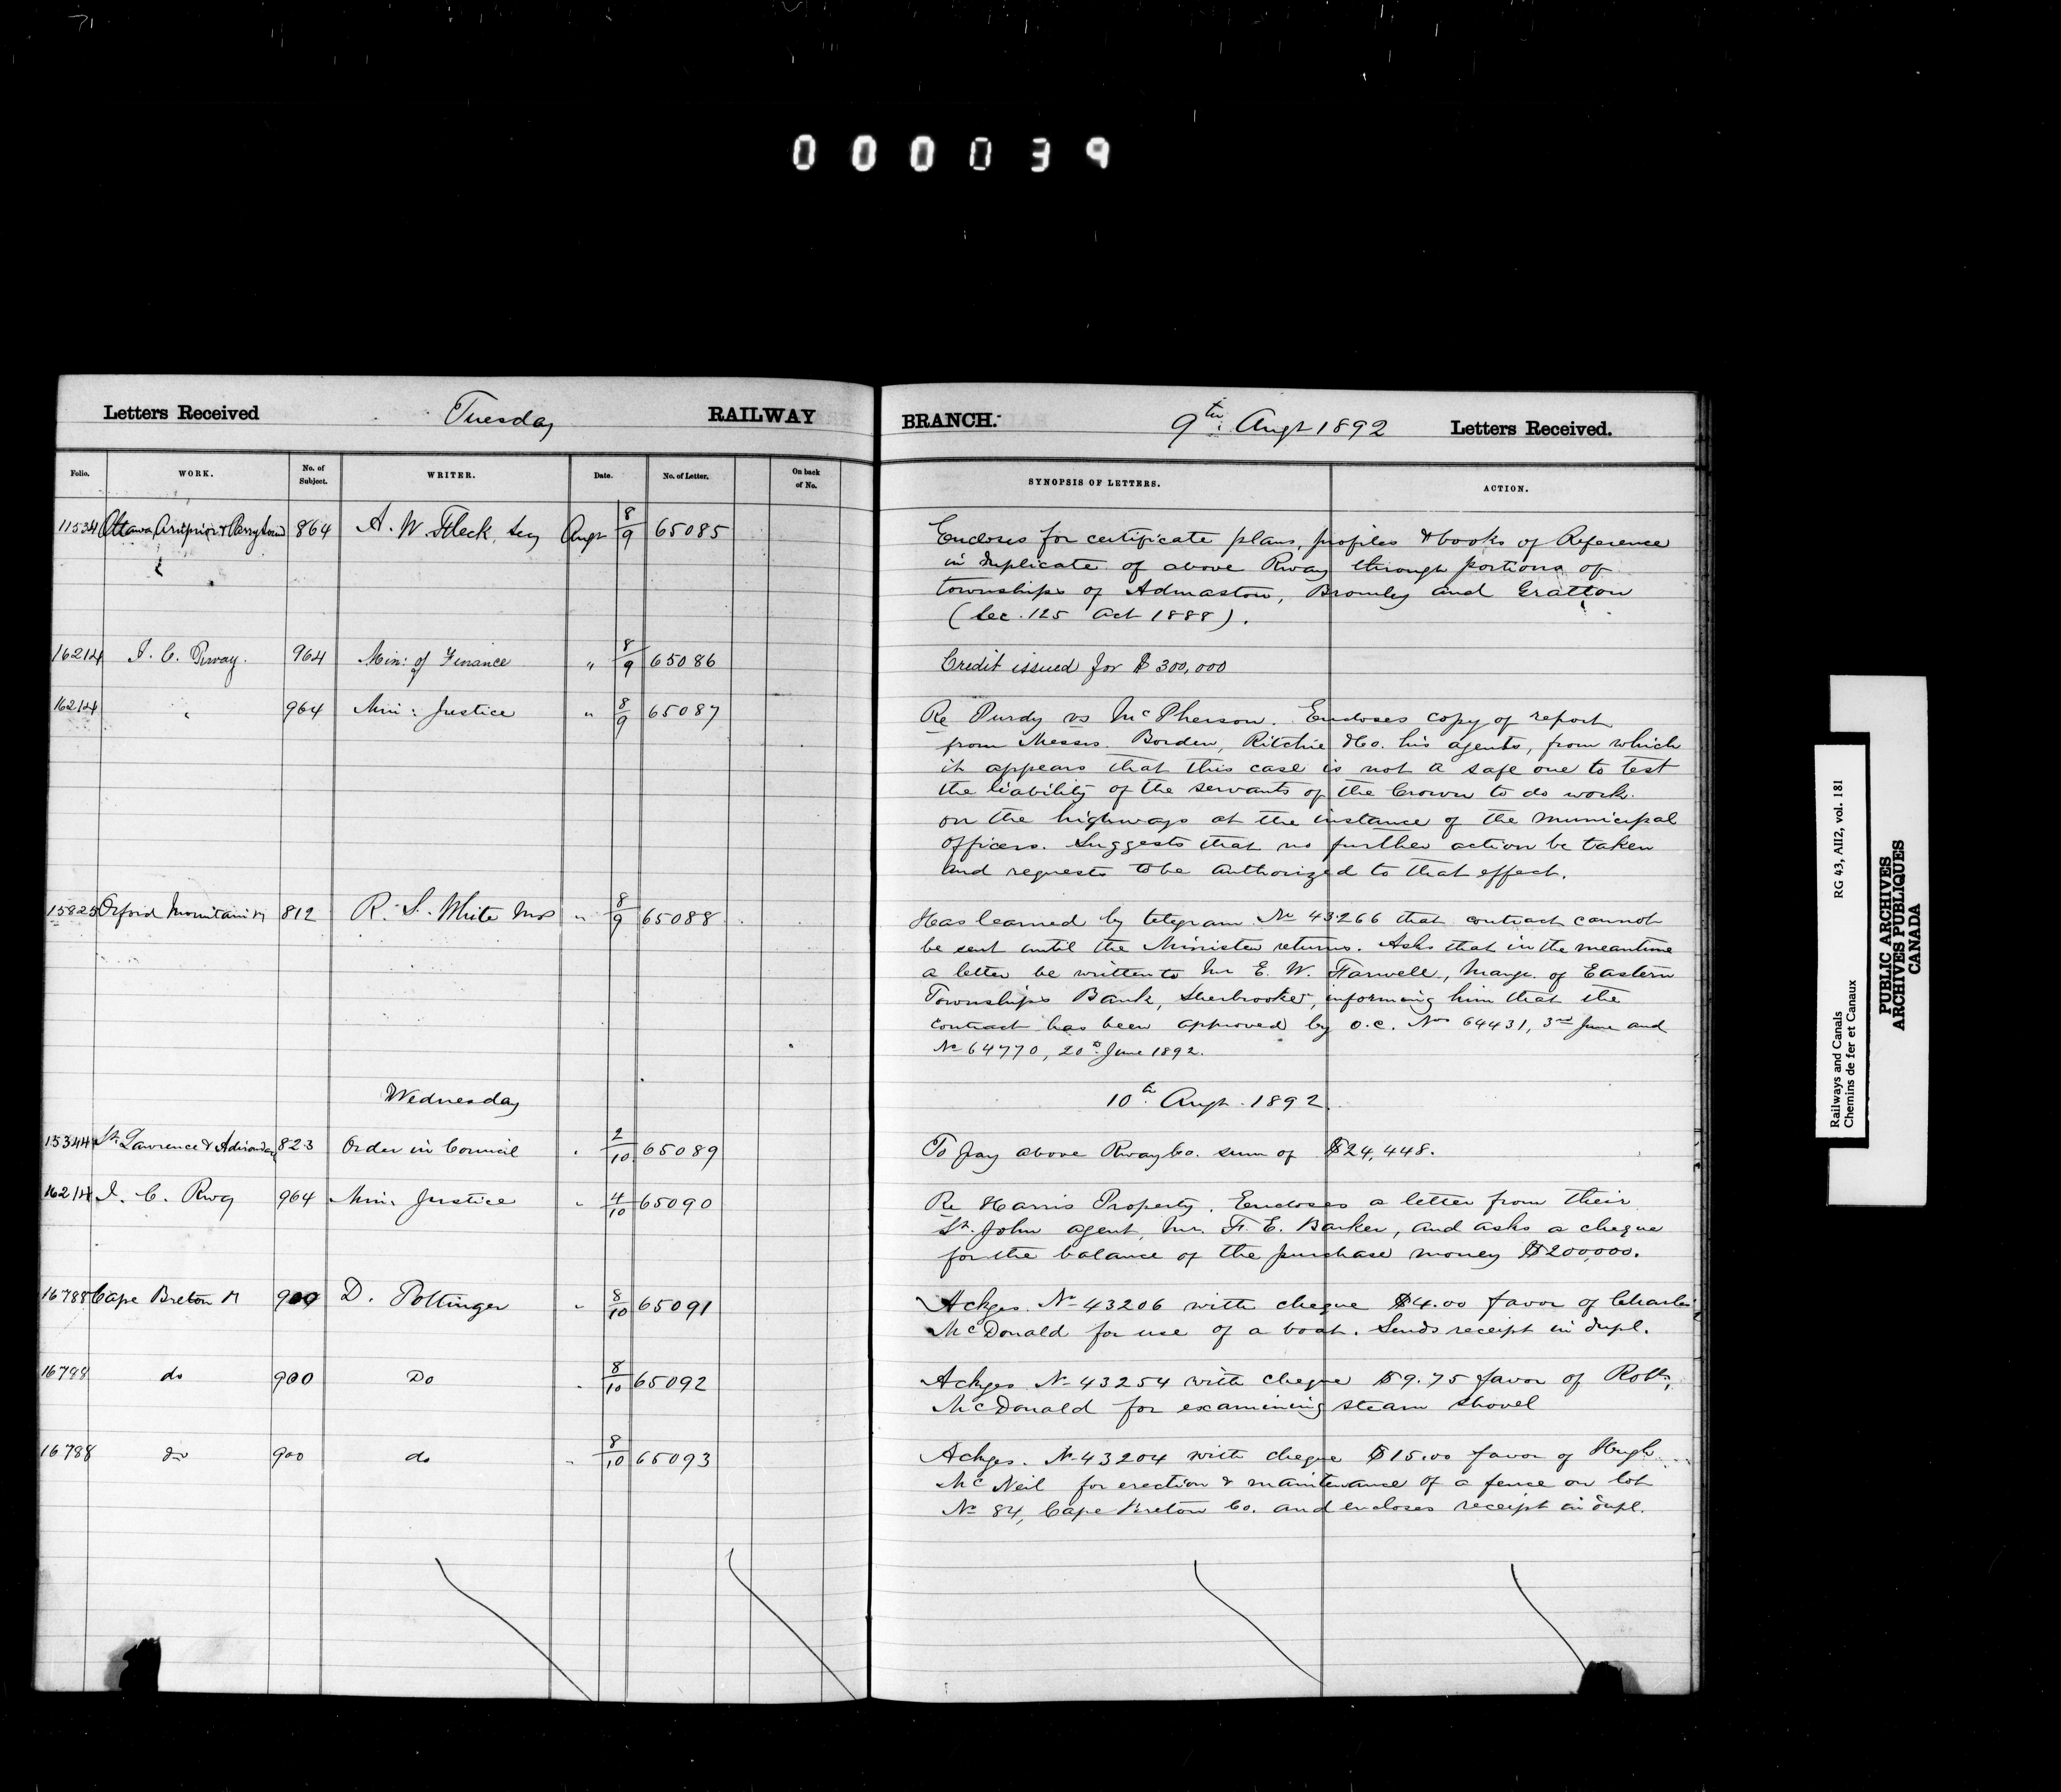 000039
Letters Received Tuesday RAILWAY BRANCH. 9th Augt 1892 Letters Received.
Folio. WORK. No. of Subject. WRITER. Date. No. of Letter. On back of No. SYNOPSIS OF LETTERS. ACTION.
11534 Ottawa Arnprior & Parry Sound 864 A. W. Fleck, Secy Augt 8/9 65085 Encloses for certificate plans, profiles & books of Reference
in duplicate of above Rway through portions of
townships of Admaston, Bromley and Gratton
(Sec. 125 Act 1888).
16214 I. C. Rway. 964 Min: of Finance " 8/9 65086 Credit issued for $300,000
16214 " 964 Min: Justice " 8/9 65087 Re Purdy vs McPherson. Encloses copy of report
from Messrs. Borden, Ritchie & Co. his agents, from which
it appears that this case is not a safe one to test
the liability of the servants of the Crown to do work
on the highways at the instance of the municipal
officers. Suggests that no further action be taken
and requests to be authorized to that effect.
15825 Orford Mountain Ry 812 R. S. White M.P. " 8/9 65088 Has learned by telegram No 43266 that contract cannot
be sent until the Minister returns. Asks that in the meantime
a letter be written to Mr E. W. Farwell, Mangr. of Eastern
Townships Bank, Sherbrooke, informing him that the
contract has been approved by O.C. Nos 64431, 3rd June and
No 64770, 20th June 1892.
Wednesday 10th Augt. 1892
15344 St. Lawrence & Adirondac 823 Order in Council " 2/10 65089 To pay above Rway Co. sum of $24,448.
16214 I. C. Rwy 964 Min. Justice " 4/10 65090 Re Harris Property. Encloses a letter from their
St. John agent, Mr. F. E. Barker, and asks a cheque
for the balance of the purchase money $200,000.
16788 Cape Breton R 900 D. Pottinger " 8/10 65091 Ackges. No 43206 with cheque $4.00 favor of Charles
McDonald for use of a boat. Sends receipt in dupl.
16788 do 900 Do " 8/10 65092 Ackges No 43254 with cheque $9.75 favor of Robt.
McDonald for examining steam shovel
16788 do 900 do " 8/10 65093 Ackges. No 43204 with cheque $15.00 favor of Hugh
McNeil for erection & maintenance of a fence on lot
No 84, Cape Breton Co. and encloses receipt in dupl.
Railways and Canals RG 43, AII2, vol. 181
Chemins de fer et Canaux
PUBLIC ARCHIVES
ARCHIVES PUBLIQUES
CANADA